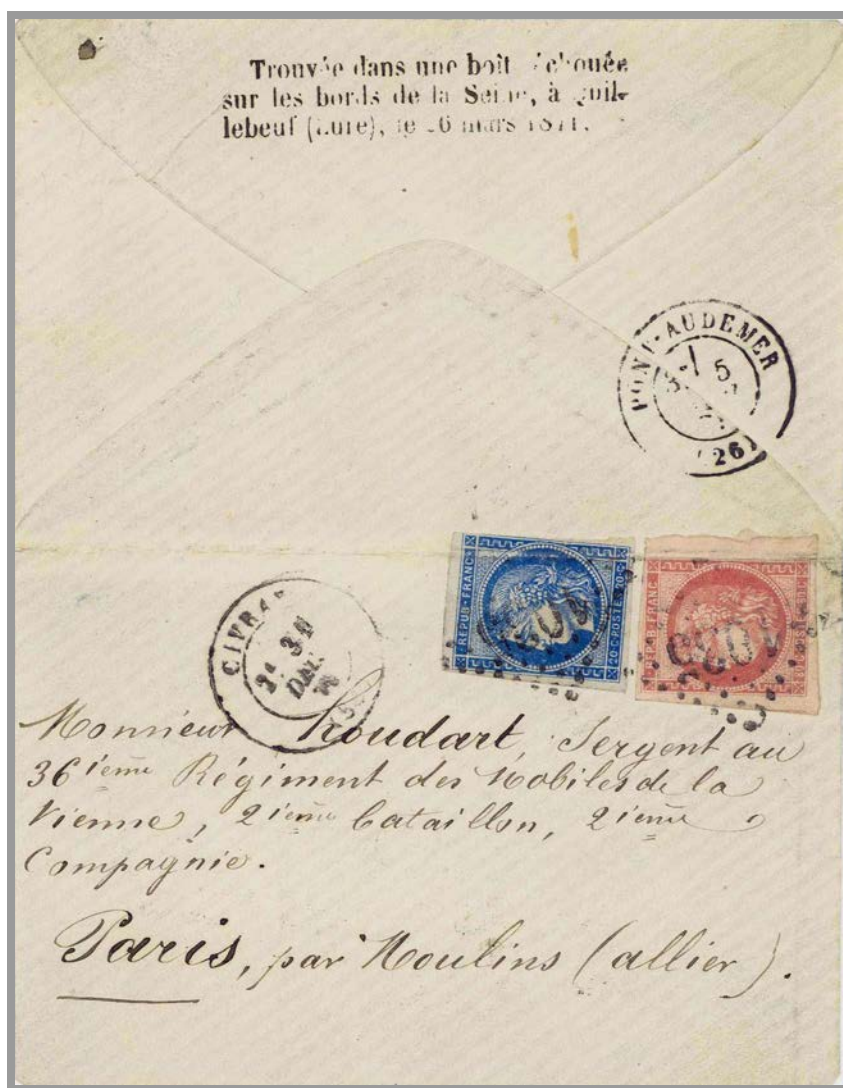 Trouvée dans une boît échouée
sur les bords de la Seine, à Quil-
lebeuf (Eure), le 6 mars 1871.
PONT-AUDEMER
5
(26)
REPUB·FRANC·
20·C·POSTES·20·C·
REPUB·FRANC·
1089
CIVRAY
2e 31
DEC.
70
Monsieur Houdart, Sergent au
36ieme Régiment des Mobiles de la
Vienne, 2ieme Bataillon, 2ieme
Compagnie.
Paris, par Moulins (allier).